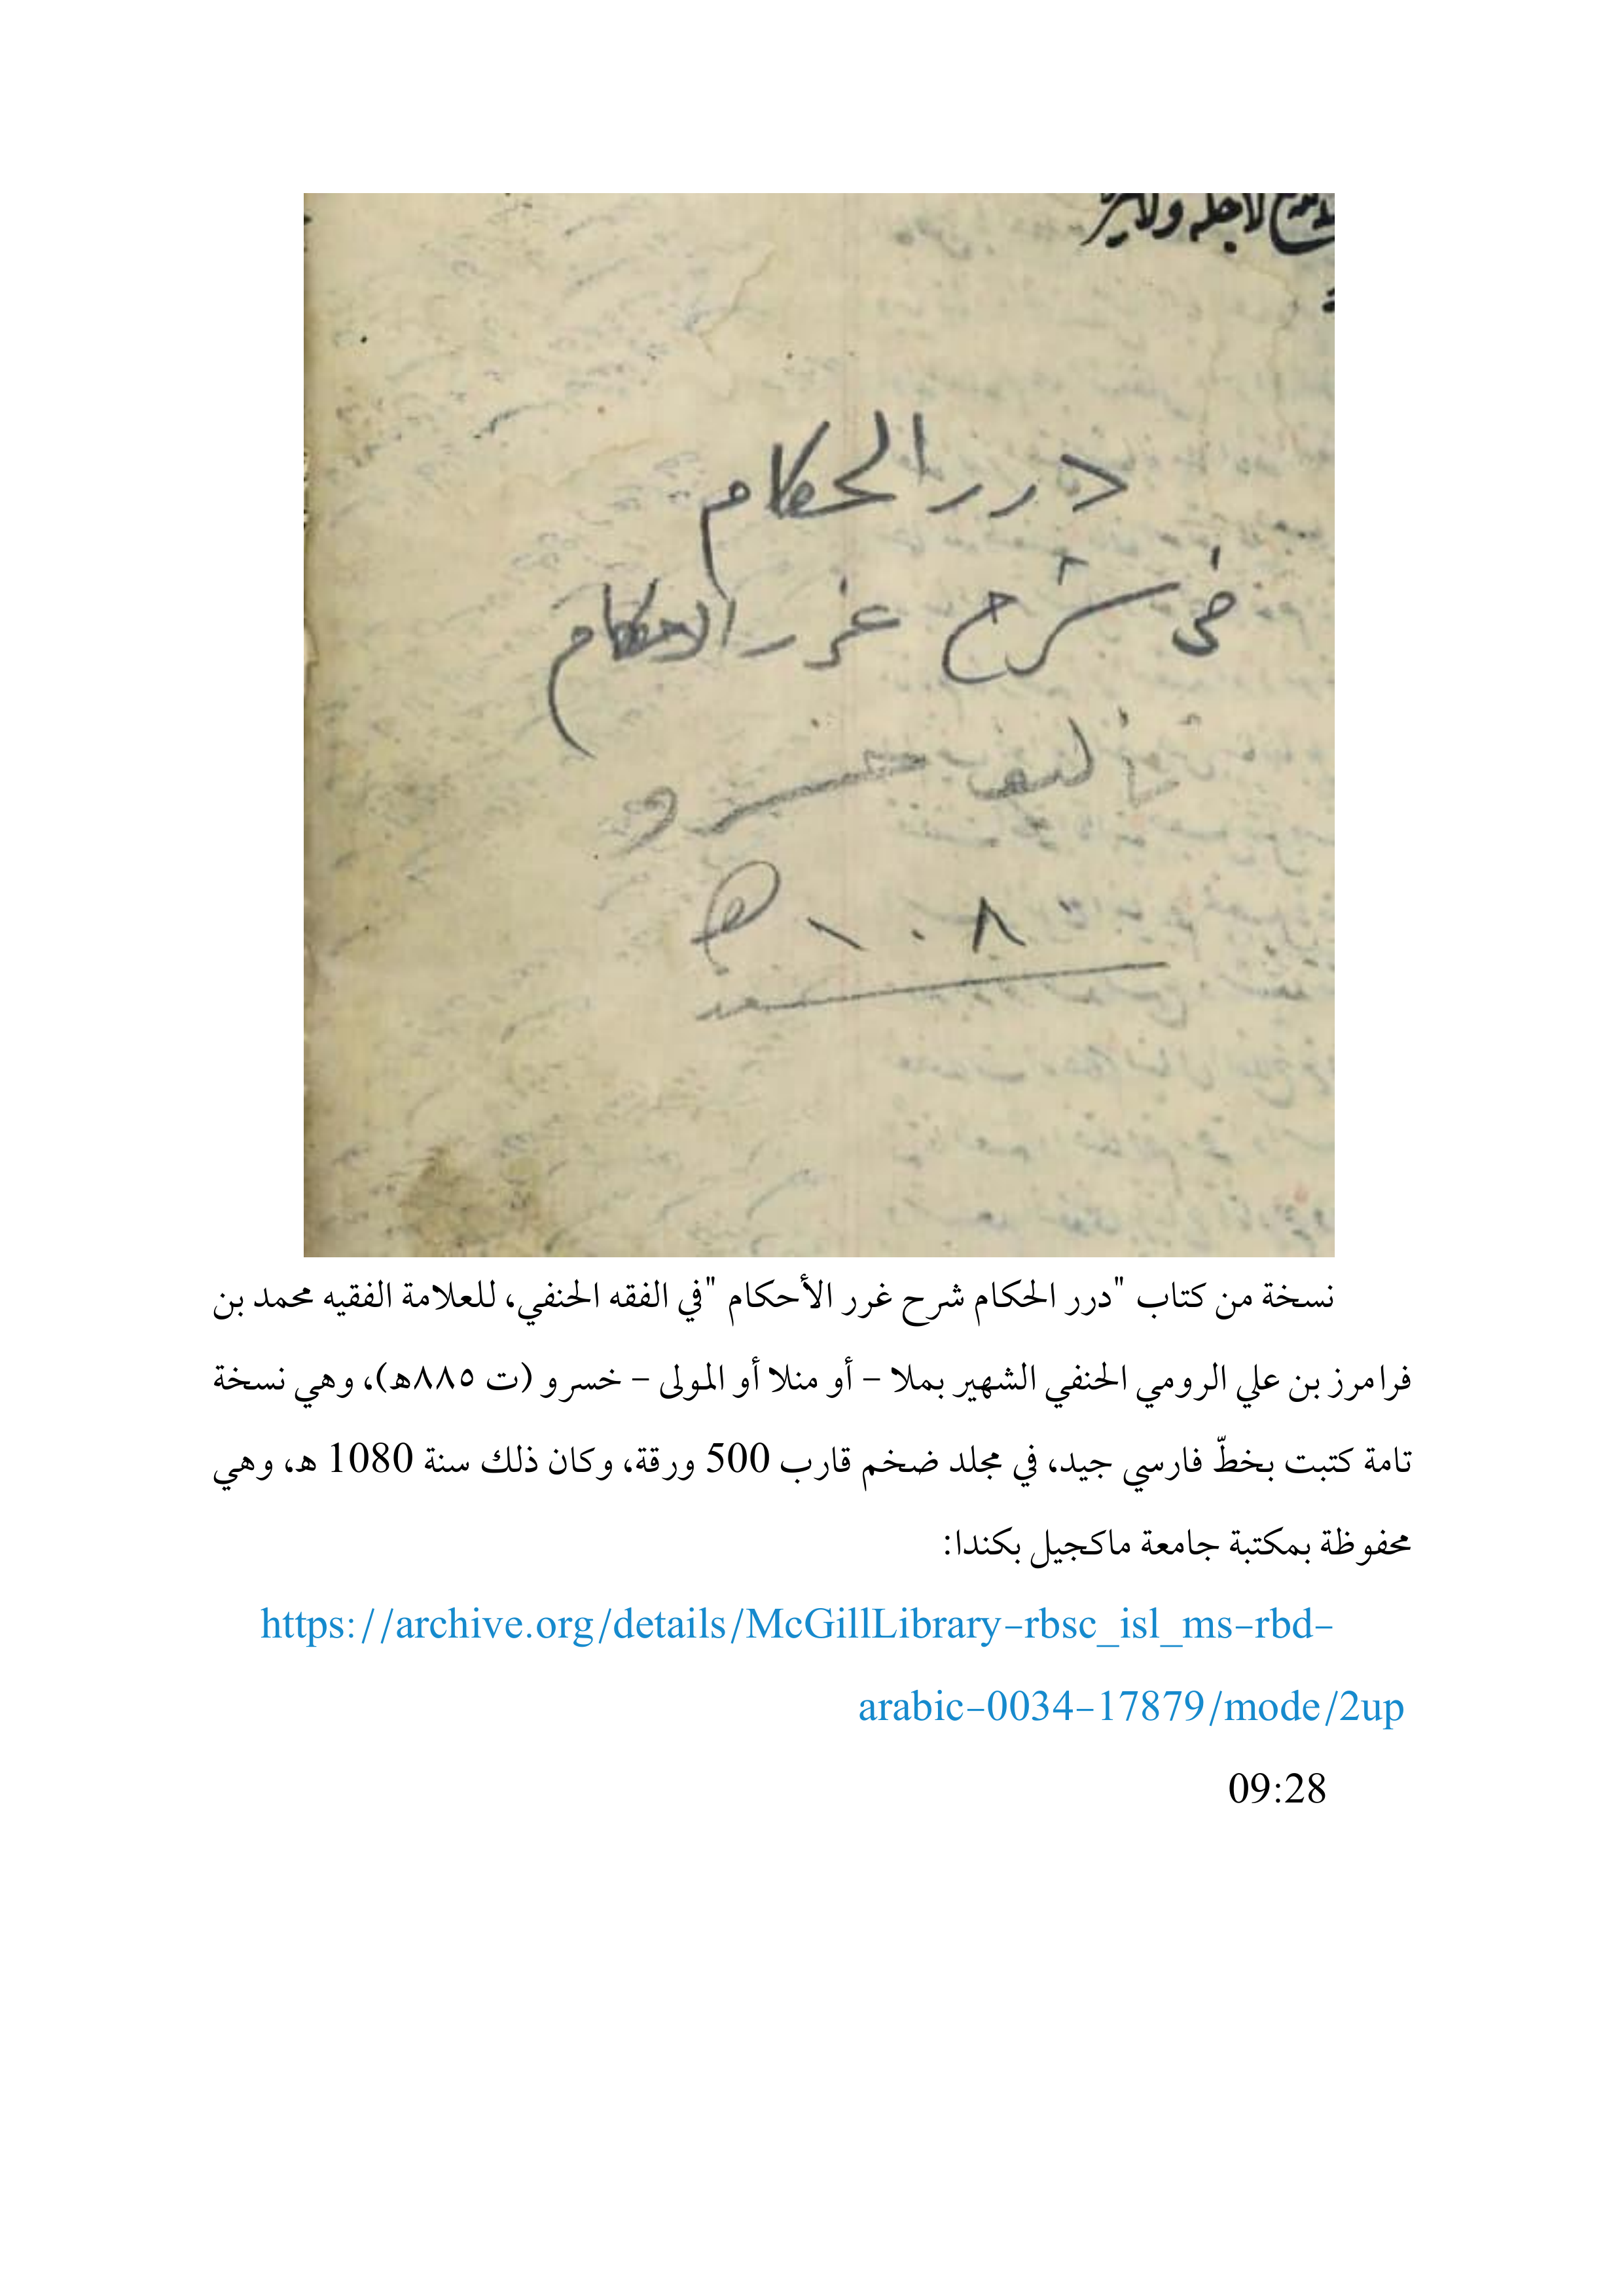 لاجله ولا
درر الحكام
فى شرح غرر الاحكام
تاليف خسرو
نسخة من كتاب "درر الحكام شرح غرر الأحكام "في الفقه الحنفي، للعلامة الفقيه محمد بن
فرامرز بن علي الرومي الحنفي الشهير بملا – أو منلا أو المولى – خسرو (ت ٨٨٥هـ)، وهي نسخة
تامة كتبت بخطّ فارسي جيد، في مجلد ضخم قارب 500 ورقة، وكان ذلك سنة 1080 هـ، وهي
محفوظة بمكتبة جامعة ماكجيل بكندا:
https://archive.org/details/McGillLibrary-rbsc_isl_ms-rbd-
arabic-0034-17879/mode/2up
09:28